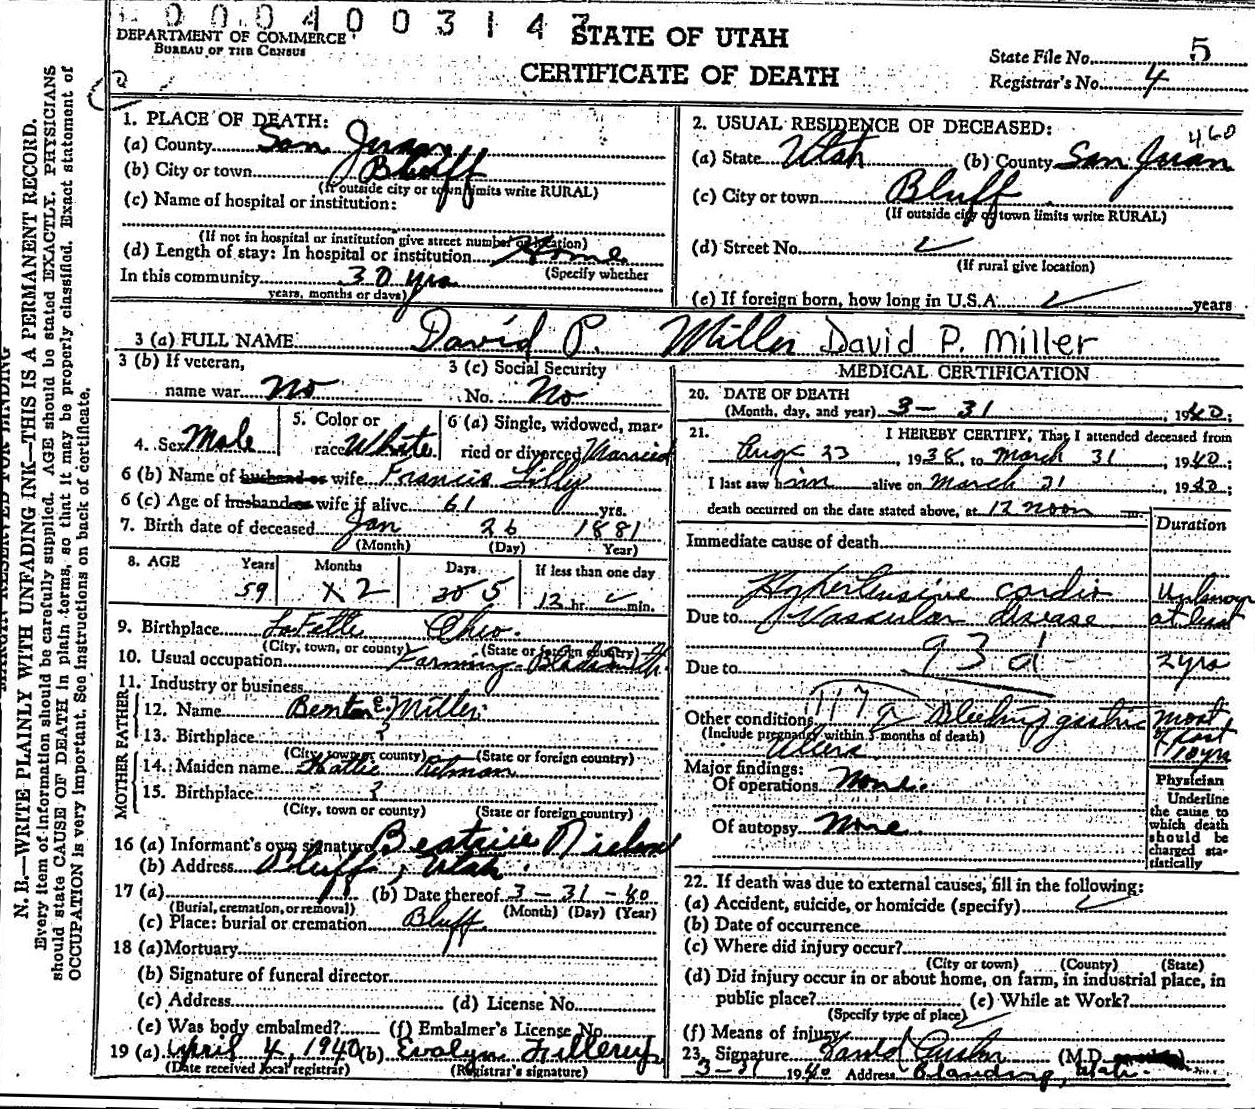 0004003147
DEPARTMENT OF COMMERCE
BUREAU OF THE CENSUS
STATE OF UTAH
CERTIFICATE OF DEATH
State File No. 5
Registrar's No. 4
N. B.—WRITE PLAINLY WITH UNFADING INK—THIS IS A PERMANENT RECORD.
Every item of information should be carefully supplied. AGE should be stated EXACTLY. PHYSICIANS
should state CAUSE OF DEATH in plain terms, so that it may be properly classified. Exact statement of
OCCUPATION is very important. See instructions on back of certificate.
1. PLACE OF DEATH:
(a) County San Juan
(b) City or town Bluff
(If outside city or town limits write RURAL)
(c) Name of hospital or institution:
(If not in hospital or institution give street number or location)
(d) Length of stay: In hospital or institution Home
(Specify whether
In this community 30 yrs
years, months or days)
2. USUAL RESIDENCE OF DECEASED:
460
(a) State Utah (b) County San Juan
(c) City or town Bluff
(If outside city or town limits write RURAL)
(d) Street No.
(If rural give location)
(e) If foreign born, how long in U.S.A. years
3 (a) FULL NAME David P. Miller David P. Miller
3 (b) If veteran,
name war No
3 (c) Social Security
No. No
4. Sex Male
5. Color or
race White
6 (a) Single, widowed, mar-
ried or divorced Married
6 (b) Name of husband or wife Francis Lilly
6 (c) Age of husband or wife if alive 61 yrs.
7. Birth date of deceased Jan 26 1881
(Month) (Day) Year)
8. AGE Years Months Days If less than one day
59 2 5 12 hr. min.
9. Birthplace Ohio.
(City, town, or county) (State or foreign country)
10. Usual occupation Farming Blacksmith
11. Industry or business
FATHER
12. Name Benton E. Miller
13. Birthplace ?
(City, town or county) (State or foreign country)
MOTHER
14. Maiden name Hattie
15. Birthplace ?
(City, town or county) (State or foreign country)
16 (a) Informant's own signature Beatrice Nielson
(b) Address Bluff, Utah.
17 (a) (b) Date thereof 3-31-40
(Burial, cremation, or removal) (Month) (Day) (Year)
(c) Place: burial or cremation Bluff
18 (a) Mortuary
(b) Signature of funeral director
(c) Address (d) License No.
(e) Was body embalmed? (f) Embalmer's License No.
19 (a) April 4, 1940 (b) Evalyn Fillerup
(Date received local registrar) (Registrar's signature)
MEDICAL CERTIFICATION
20. DATE OF DEATH
(Month, day, and year) 3-31, 1940;
21. I HEREBY CERTIFY, That I attended deceased from
Aug 23, 1938, to March 31, 1940,
I last saw him alive on March 31, 1940;
death occurred on the date stated above, at 12 noon m.
Duration
Immediate cause of death
Hypertensive cardio Unknown
Due to Vascular disease at least
93d
Due to 2 yrs
117a
Other conditions Bleeding gastric most
(Include pregnancy within 3 months of death)
Ulcers of last
10 yrs
Major findings:
Of operations None
Of autopsy None
Physician
Underline
the cause to
which death
should be
charged sta-
tistically
22. If death was due to external causes, fill in the following:
(a) Accident, suicide, or homicide (specify)
(b) Date of occurrence
(c) Where did injury occur?
(City or town) (County) (State)
(d) Did injury occur in or about home, on farm, in industrial place, in
public place? (e) While at Work?
(Specify type of place)
(f) Means of injury
23. Signature (M.D.
3-31 1940 Address Blanding, Utah.